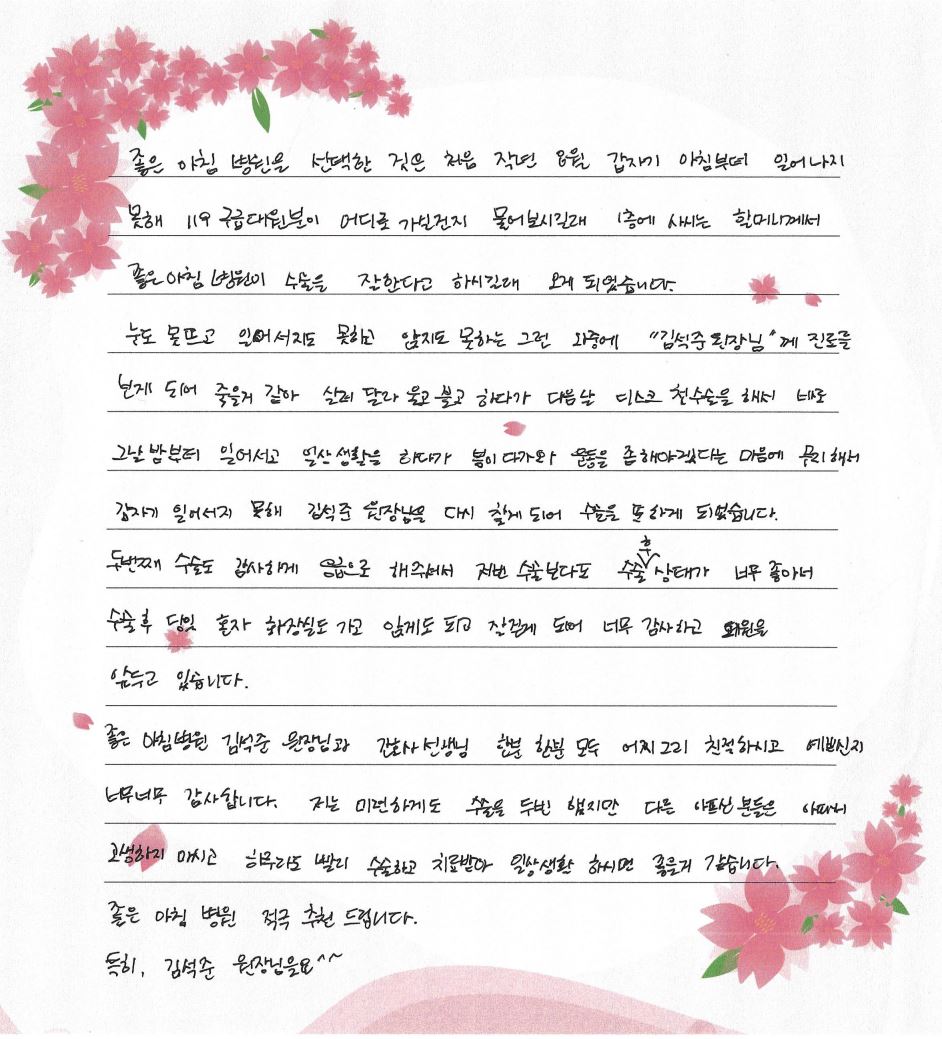 좋은 아침 병원을 선택한 것은 처음 작년 8월 갑자기 아침부터 일어나지
못해 119 구급대원분이 어디로 가실건지 물어보시길래 1층에 사시는 할머니께서
좋은아침 병원이 수술을 잘한다고 하시길래 오게 되었습니다.
눈도 못뜨고 일어서지도 못하고 앉지도 못하는 그런 와중에 "김석준 원장님"께 진료를
보게 되어 죽을거 같아 살려 달라 울고 불고 하다가 다음날 디스크 첫수술을 해서 바로
그날 밤부터 일어서고 일상생활을 하다가 봄이 다가와 운동을 좀 해야겠다는 마음에 무리해서
갑자기 일어서지 못해 김석준 원장님을 다시 찾게 되어 수술을 또 하게 되었습니다.
두번째 수술도 감사하게 응급으로 해주셔서 저번 수술보다도 수술 후 상태가 너무 좋아서
수술후 당일 혼자 화장실도 가고 앉게도 되고 잘걷게 되어 너무 감사하고 퇴원을
앞두고 있습니다.
좋은 아침병원 김석준 원장님과 간호사 선생님 한분 한분 모두 어찌 그리 친절하시고 예쁘신지
너무너무 감사합니다. 저는 미련하게도 수술을 두번 했지만 다른 아프신 분들은 아파서
고생하지 마시고 하루라도 빨리 수술하고 치료받아 일상생활 하시면 좋을거 같습니다.
좋은 아침 병원 적극 추천 드립니다.
특히, 김석준 원장님을요^^